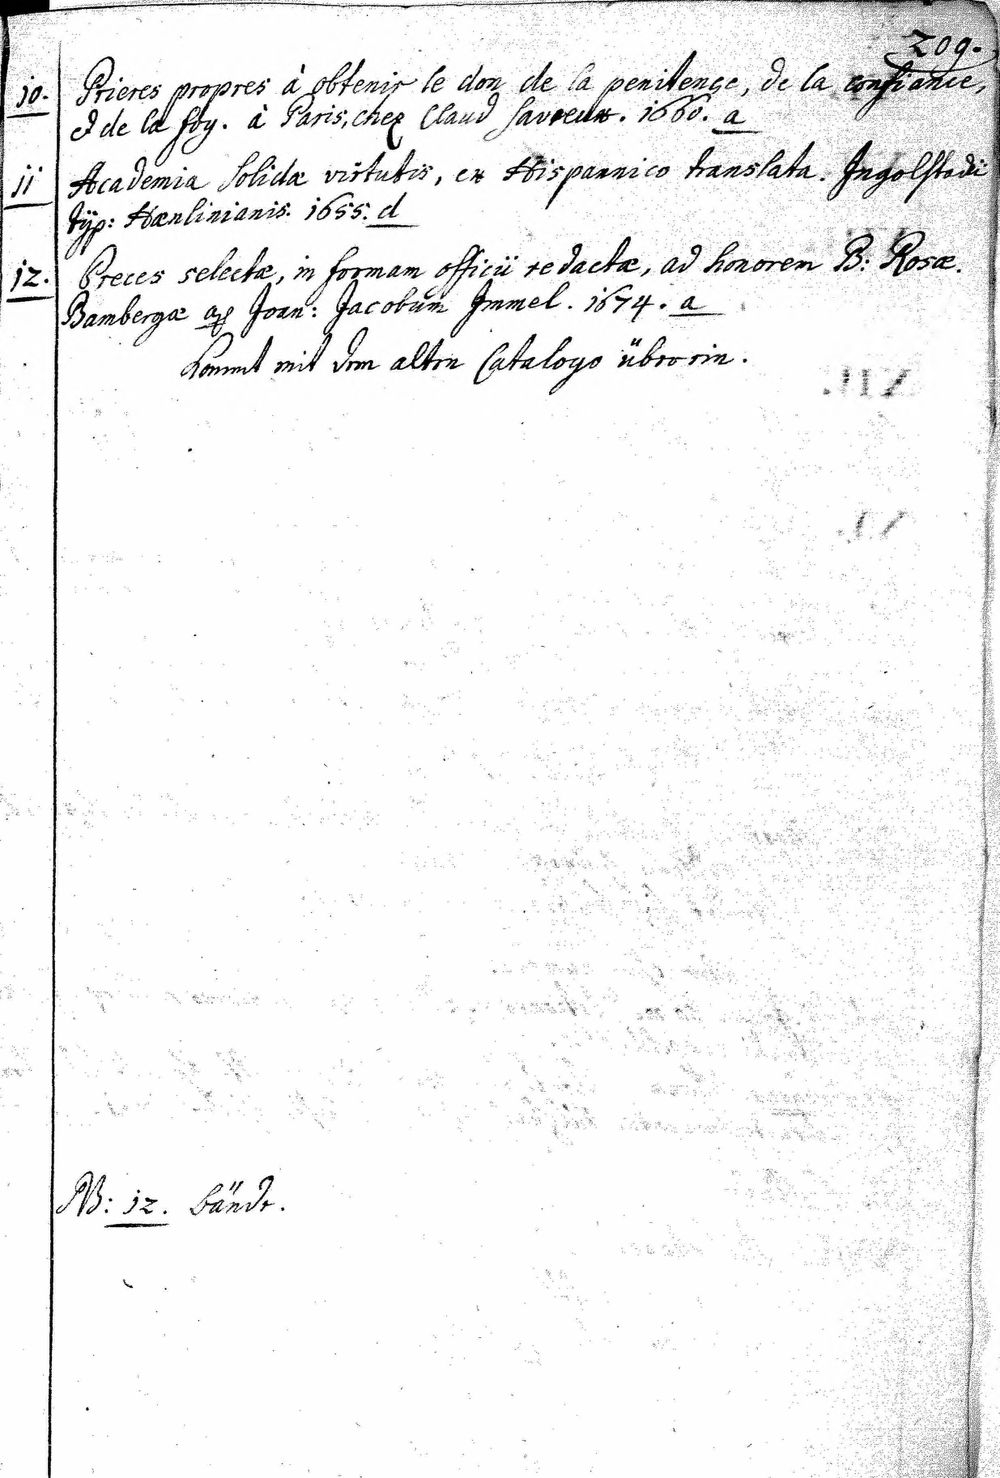 209.
10. Prieres propres à obtenir le don de la penitençe, de la confiance,
et de la foy. à Paris, chez Claud Savreux. 1660. a
11 Academia solidæ virtutis, ex Hispannico translata. Ingolstadii
typ: Hænlinianis. 1655. d
12. Preces selectæ, in formam officii redactæ, ad honorem B: Rosæ.
Bambergæ ap Joan: Jacobum Immel. 1674. a
Kommt mit dem alten Catalogo überein.
NB: 12. bände.